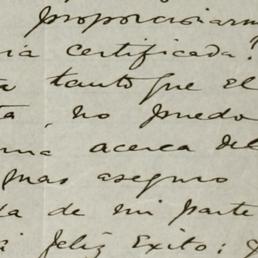 proporciarm
ria certificada?
a tanto que el
ta, no puedo
ma acerca del
mas aseguro
da de mi parte
á feliz Exito; y